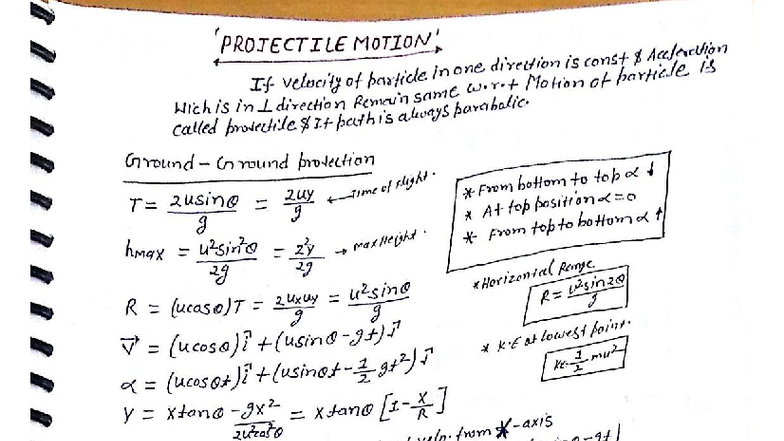 'PROJECTILE MOTION'
If velocity of particle in one direction is const & Acceleration
Wich is in ⊥ direction Remain same w.r.t Motion of particle is
called protectile & It path is always parabolic.
Ground - Ground protection
T = 2usinθ/g = 2uy/g ← Time of flight.
hmax = u²sin²θ/2g = 2²y/2g → max Height.
R = (ucosθ)T = 2uxuy/g = u²sinθ/g
V⃗ = (ucosθ)î + (usinθ-gt)ĵ
α = (ucosθt)î + (usinθt - 1/2 gt²)ĵ
Y = xtanθ - gx²/2u²cos²θ = xtanθ [1 - x/R]
* From bottom to top α ↓
* At top position α = 0
* From top to bottom α ↑
* Horizontal Range
R = u²sin2θ/g
* K.E at lowest point.
KE = 1/2 mu²
from X-axis